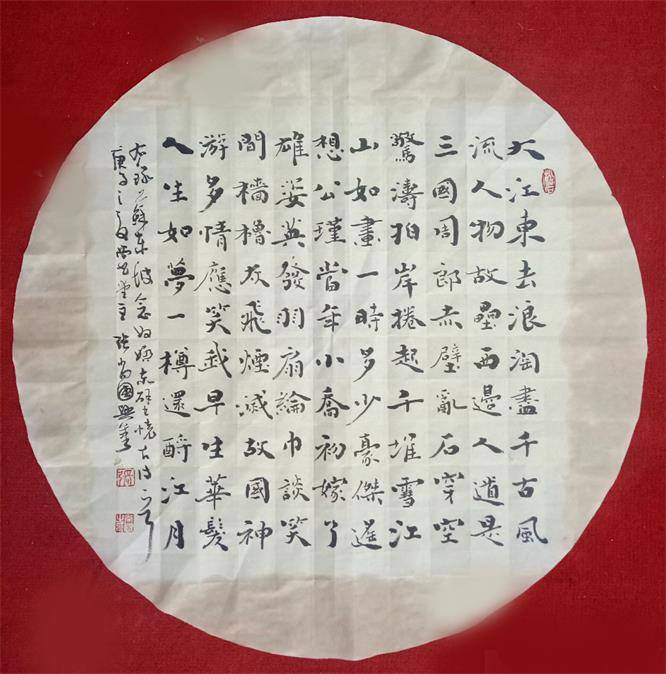 大江東去浪淘盡千古風
流人物故壘西邊人道是
三國周郎赤壁亂石穿空
驚濤拍岸捲起千堆雪江
山如畫一時多少豪傑遙
想公瑾當年小喬初嫁了
雄姿英發羽扇綸巾談笑
間檣櫓灰飛煙滅故國神
游多情應笑我早生華髮
人生如夢一樽還酹江月
蘇東坡念奴嬌赤壁懷古詩一
庚子之夏堂主張國興